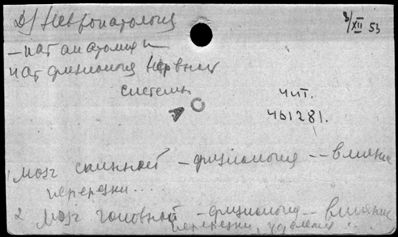 Д/ Невропатология
3/XII 53
– пат анатомия и
пат физиология нервной
системы
чит.
461281.
1 мозг спинной – физиология – – влияние
перерезки...
2 мозг головной – физиология – влияние
перерезки, удаления